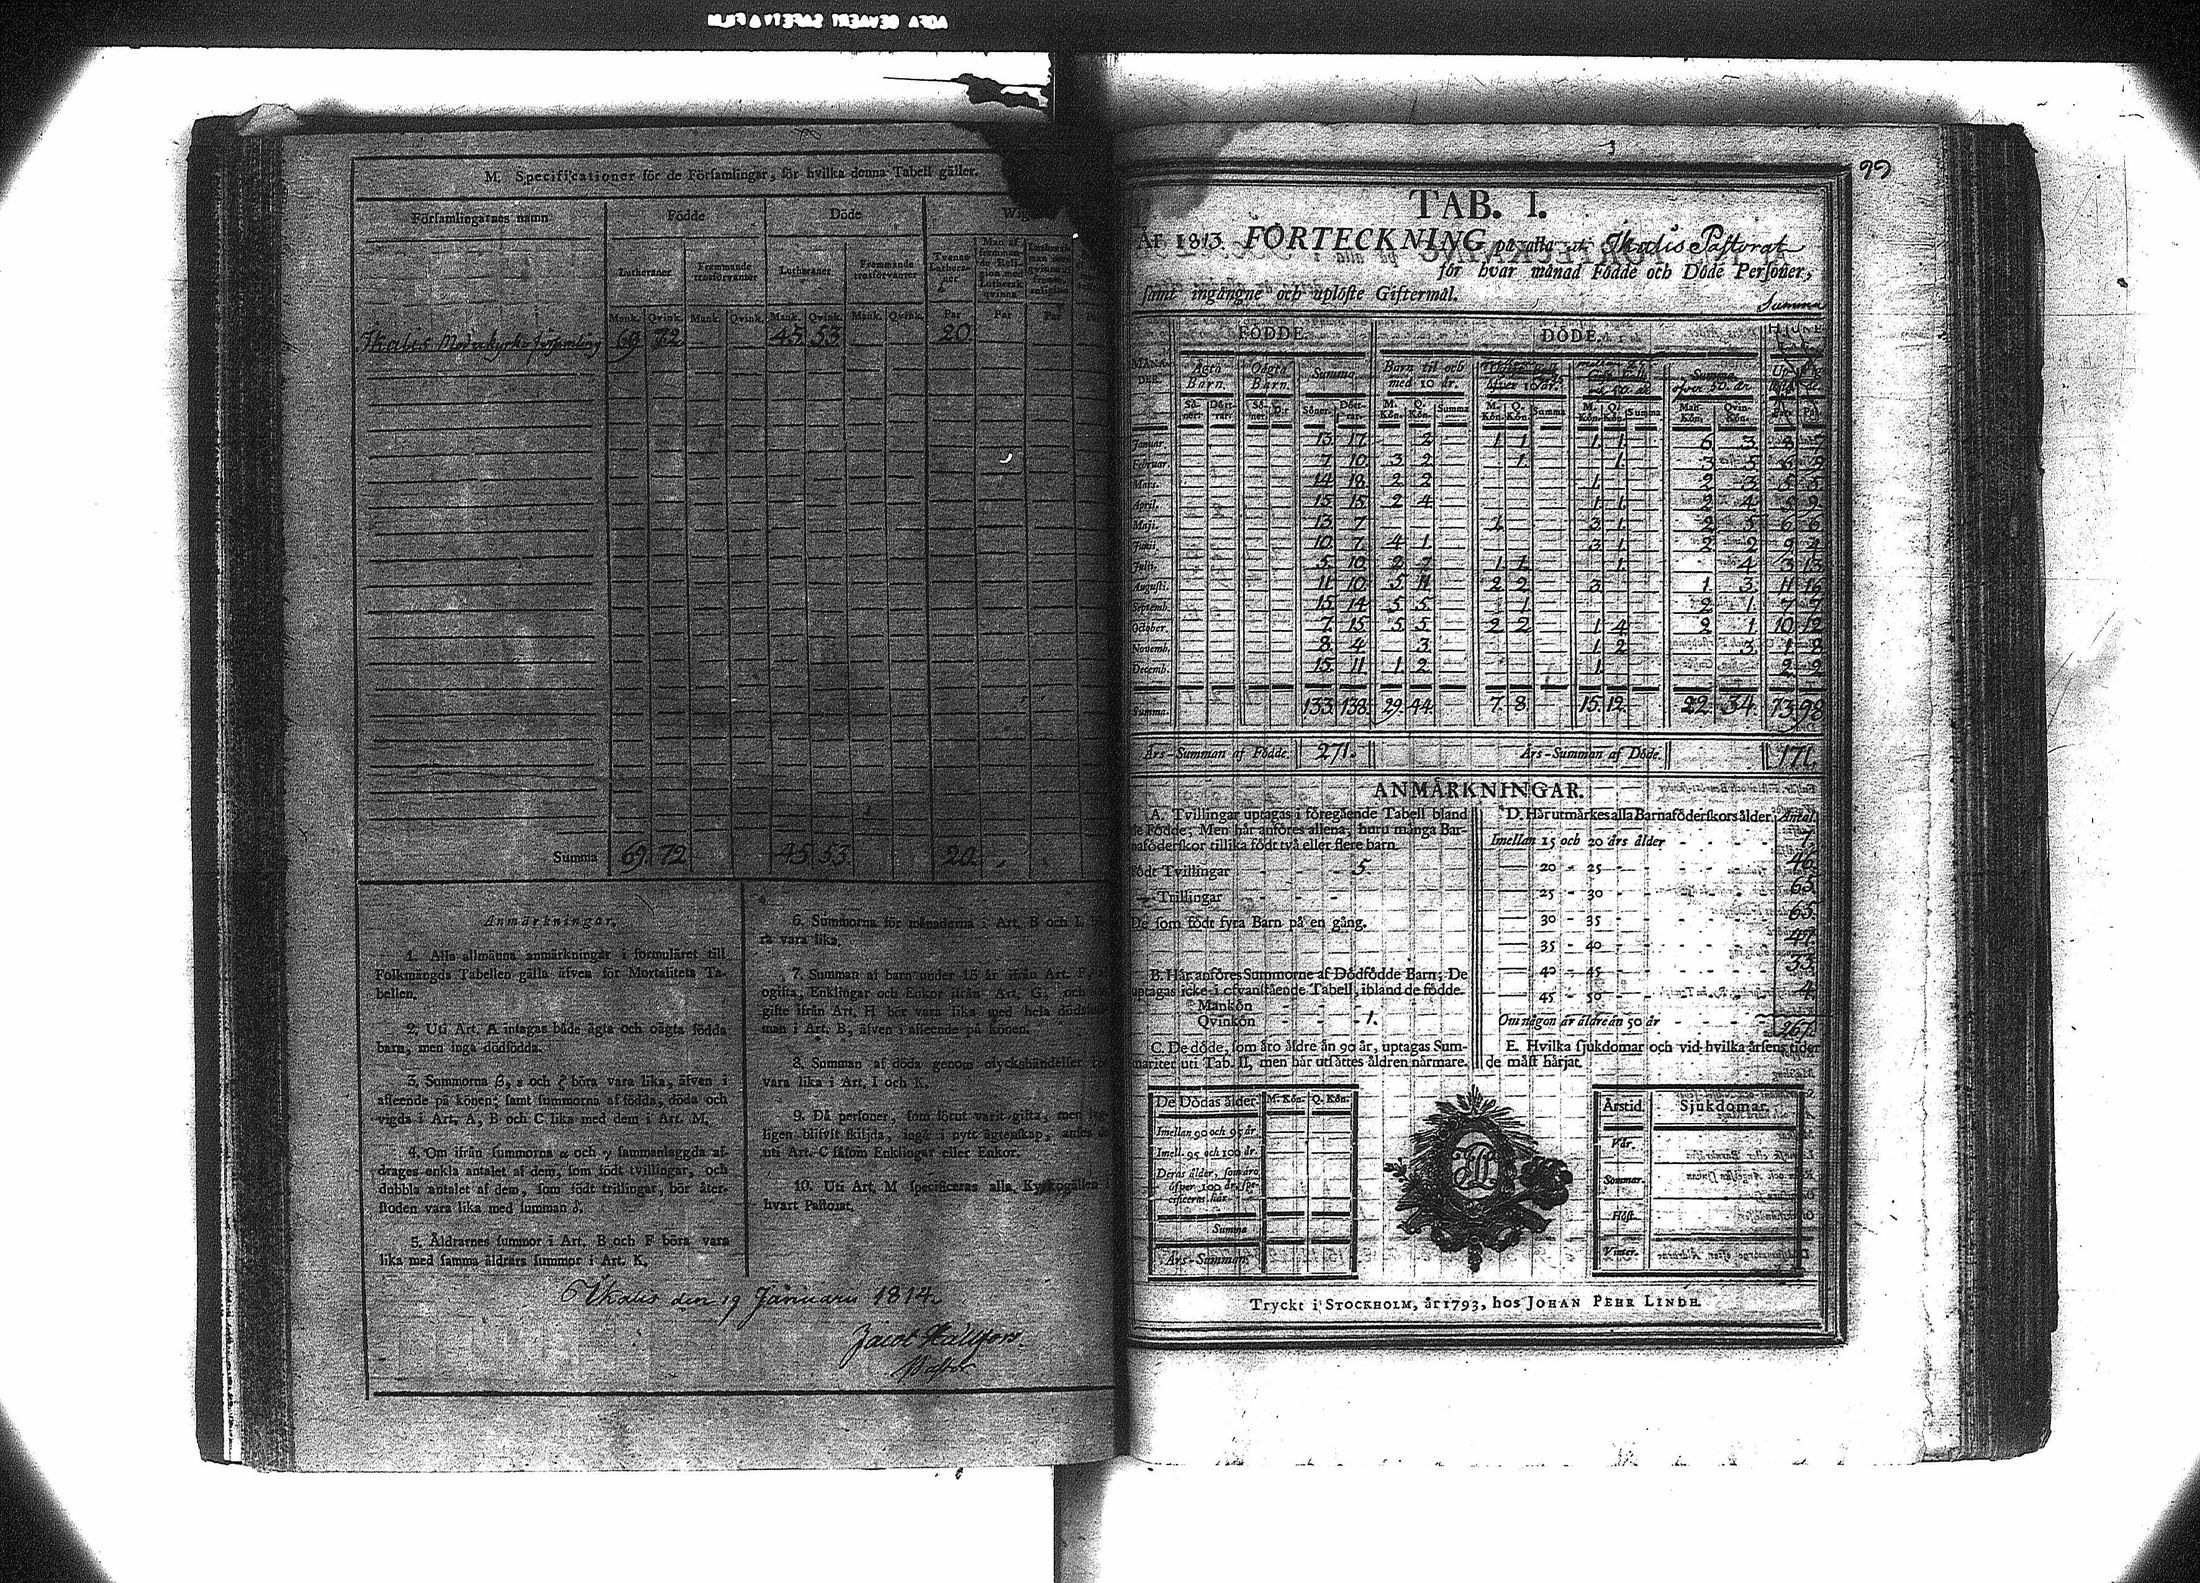 M. Specificationer för de Församlingar, för hvilka denna Tabell gäller.
Församlingarnes namn
Födde
Döde
Lutheraner
Främmande trosförvanter
Lutheraner
Främmande trosförvanter
Mank. Qvink. Mank. Qvink. Mank. Qvink. Mank. Qvink. Par Par Par
Ikalis Moderkyrko församling 69 72 45 53 20
Summa 69. 72 45 53 20
Anmärkningar.
1. Alla allmänna anmärkningar i formuläret till
Folkmängds Tabellen gälla äfven för Mortalitets Ta-
bellen.
2. Uti Art. A intagas både ägta och oägta födda
barn, men inga dödfödda.
3. Summorna β, ε och ζ böra vara lika, äfven i
afseende på könen; samt summorna af födda, döda och
vigda i Art. A, B och C lika med dem i Art. M.
4. Om ifrån summorna α och γ sammanlaggda af-
drages enkla antalet af dem, som födt tvillingar, och
dubbla antalet af dem, som födt trillingar, bör åter-
stoden vara lika med summan δ.
5. Åldrarnes summor i Art. B och F böra vara
lika med samma åldrars summor i Art. K.
6. Summorna för månaderna i Art. B och I. bö-
ra vara lika.
7. Summan af barn under 15 år ifrån Art. F,
ogifta, Enklingar och Enkor ifrån Art. G, och
gifte ifrån Art. H bör vara lika med hela döds-
man i Art. B, äfven i afseende på könen.
8. Summan af döda genom olyckshändelser
vara lika i Art. I och K.
9. Då personer, som förut varit gifta, men
ligen blifvit skiljda, ingå i nytt ägtenskap, antes
uti Art. C såsom Enklingar eller Enkor.
10. Uti Art. M specificeras alla Kyrkogällen i
hvart Pastorat.
Ikalis den 19 Januarii 1814
Jacob Hällfors
Pastor
99
TAB. I.
År 1813. FÖRTECKNING på alla uti Ikalis Pastorat
för hvar månad Födde och Döde Personer,
samt ingångne och uplöste Giftermål.
Summa
FÖDDE.
DÖDE.
Ägta Barn. Oägta Barn. Summa. Barn til och med 10 år.
Januar. 13. 17. 2 1. 1. 1. 1. 6 3. 8 7
Februar. 7. 10. 3 2 1. 1. 3 5 6 9
Mart. 14 18. 2 2 1. 2 3. 5 5
April. 15 15 2 4 1. 1. 2 4. 5 9
Maji. 13. 7 1. 3 1. 2 5 6 6
Junii. 10. 7. 4 1. 3 1. 2 2 9 4
Julii. 5. 10. 2 7 1. 1. 1. 4 3 13
Augusti. 11. 10. 5 11 2 2 3 1 3. 11 16
Septemb. 15. 14 5 5. 1. 2 1. 7 7
October. 7. 15 5 5 2 2 1. 4 2 1 10 12
Novemb. 8. 4 3. 1. 2 3. 1. 8
Decemb. 15. 11 1. 2 1. 2 2
Summa. 133. 138. 29. 44. 7. 8. 15. 12. 22. 34. 73. 98.
Års-Summan af Födde. 271.
Års-Summan af Döde. 171.
ANMÄRKNINGAR.
A. Tvillingar uptagas i föregående Tabell bland
de Födde; Men här anföres allena, huru många Bar-
naföderskor tillika födt två eller flere barn.
Födt Tvillingar - - - 5.
— Trillingar
De som födt fyra Barn på en gång.
B. Här anföres Summorne af Dödfödde Barn; De
uptagas icke i ofvanstående Tabell, ibland de födde.
Mankön
Qvinkön - - - 1.
C. De döde, som äro äldre än 90 år, uptagas Sum-
mariter uti Tab. II, men här utsättes åldren närmare.
D. Här utmärkes alla Barnaföderskors ålder. Antal.
Imellan 15 och 20 års ålder 7.
20 - 25 46.
25 - 30 65.
30 35 65.
35 - 40 47.
40 - 45 33.
45 - 50 4.
Om någon är äldre än 50 år
267.
E. Hvilka sjukdomar och vid hvilka årsens tider
de mäst härjat.
De Dödas ålder. M. Kön. Q. Kön.
Imellan 90 och 95 år.
Imell. 95 och 100 år.
Deras ålder, som äro
öfver 100 år, spe-
cificeras här.
Summa
Års-Summan.
Årstid. Sjukdomar.
Vår.
Sommar.
Höst.
Vinter.
Tryckt i STOCKHOLM, år 1793, hos JOHAN PEHR LINDH.